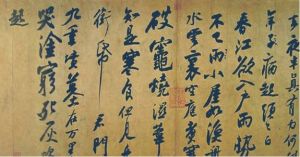 夜半真有力何殊
年子病起頭已白
春江欲入戶雨勢
不已雨小屋如漁舟
水雲裏空庖煮寒菜
破竈燒濕葦
知是寒食但見烏
銜帋君門
九重墳墓在万里
哭塗窮死灰吹
起